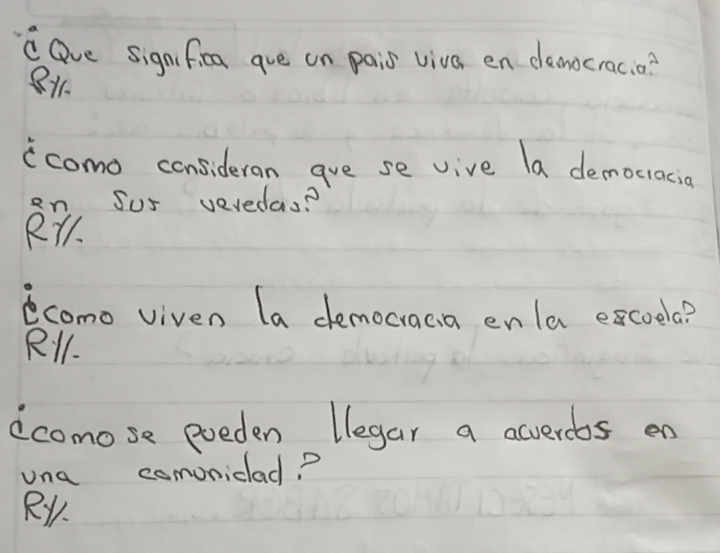 ¿Que significa que un pais viva en democracia?
R//.
¿como consideran que se vive la democracia
en sus veredas?
R//.
¿como viven la democracia en la escuela?
R//.
¿como se pueden llegar a acuerdos en
una comunidad?
R//.